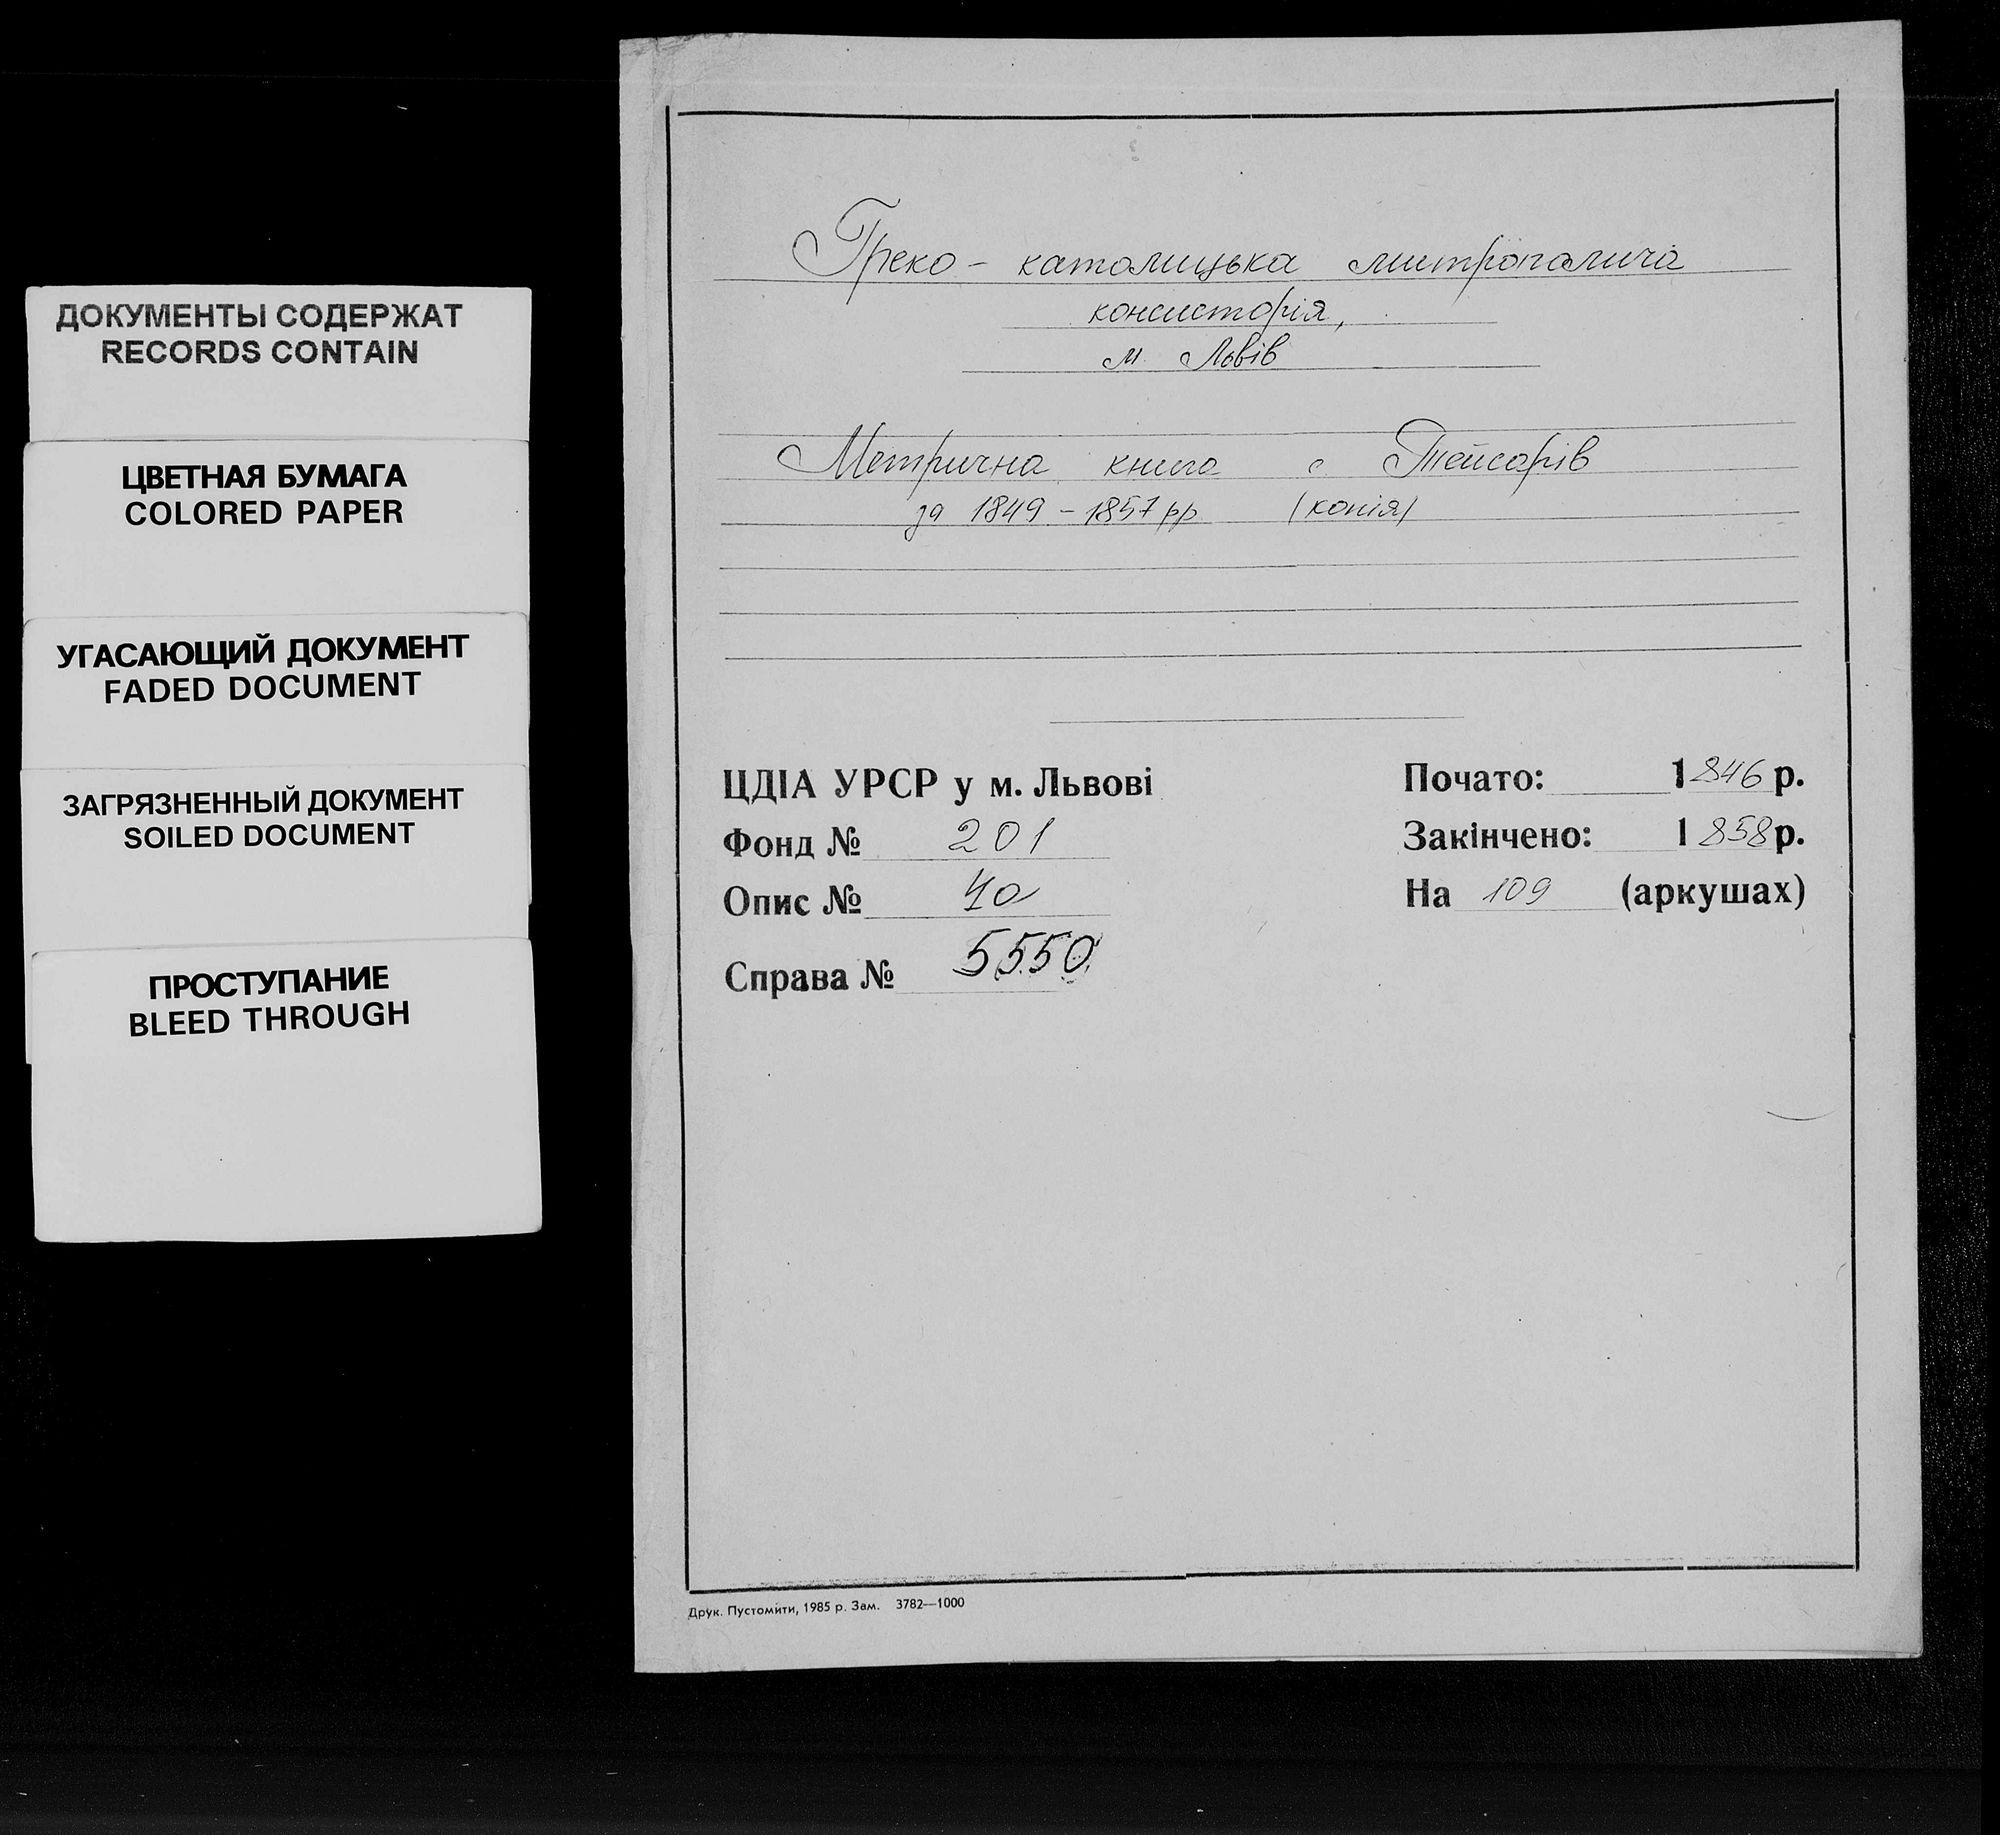 ДОКУМЕНТЫ СОДЕРЖАТ
RECORDS CONTAIN
ЦВЕТНАЯ БУМАГА
COLORED PAPER
УГАСАЮЩИЙ ДОКУМЕНТ
FADED DOCUMENT
ЗАГРЯЗНЕННЫЙ ДОКУМЕНТ
SOILED DOCUMENT
ПРОСТУПАНИЕ
BLEED THROUGH
Греко-католицька митрополича
консисторія,
м. Львів
Метрична книга с. Тейсарів
за 1849-1857 рр (копія)
ЦДІА УРСР у м. Львові
Фонд № 201
Опис № 4а
Справа № 5550
Почато: 1846 р.
Закінчено: 1858 р.
На 109 (аркушах)
Друк. Пустомити, 1985 р. Зам. 3782—1000